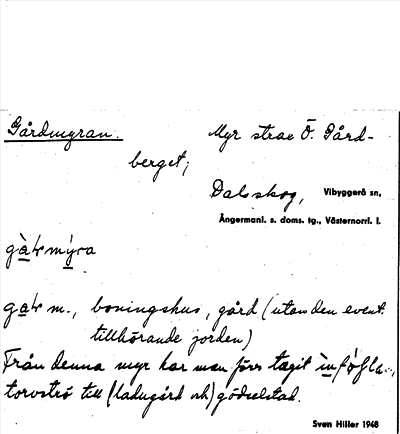 Gårdmyran. Myr strax Ö. Gård-
berget;
Dalsskog, Vibyggerå sn,
Ångermanl. s. doms. tg., Västernorrl. l.
m., boningshus, gård (utan den event.
tillhörande jorden)
Från denna myr har man förr tagit
torvströ till (ladugård och) gödselstad.
Sven Hiller 1948